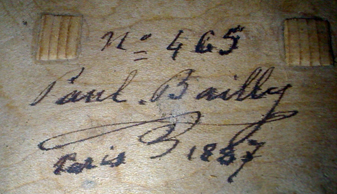 Nº 465
Paul Bailly
Paris 1887